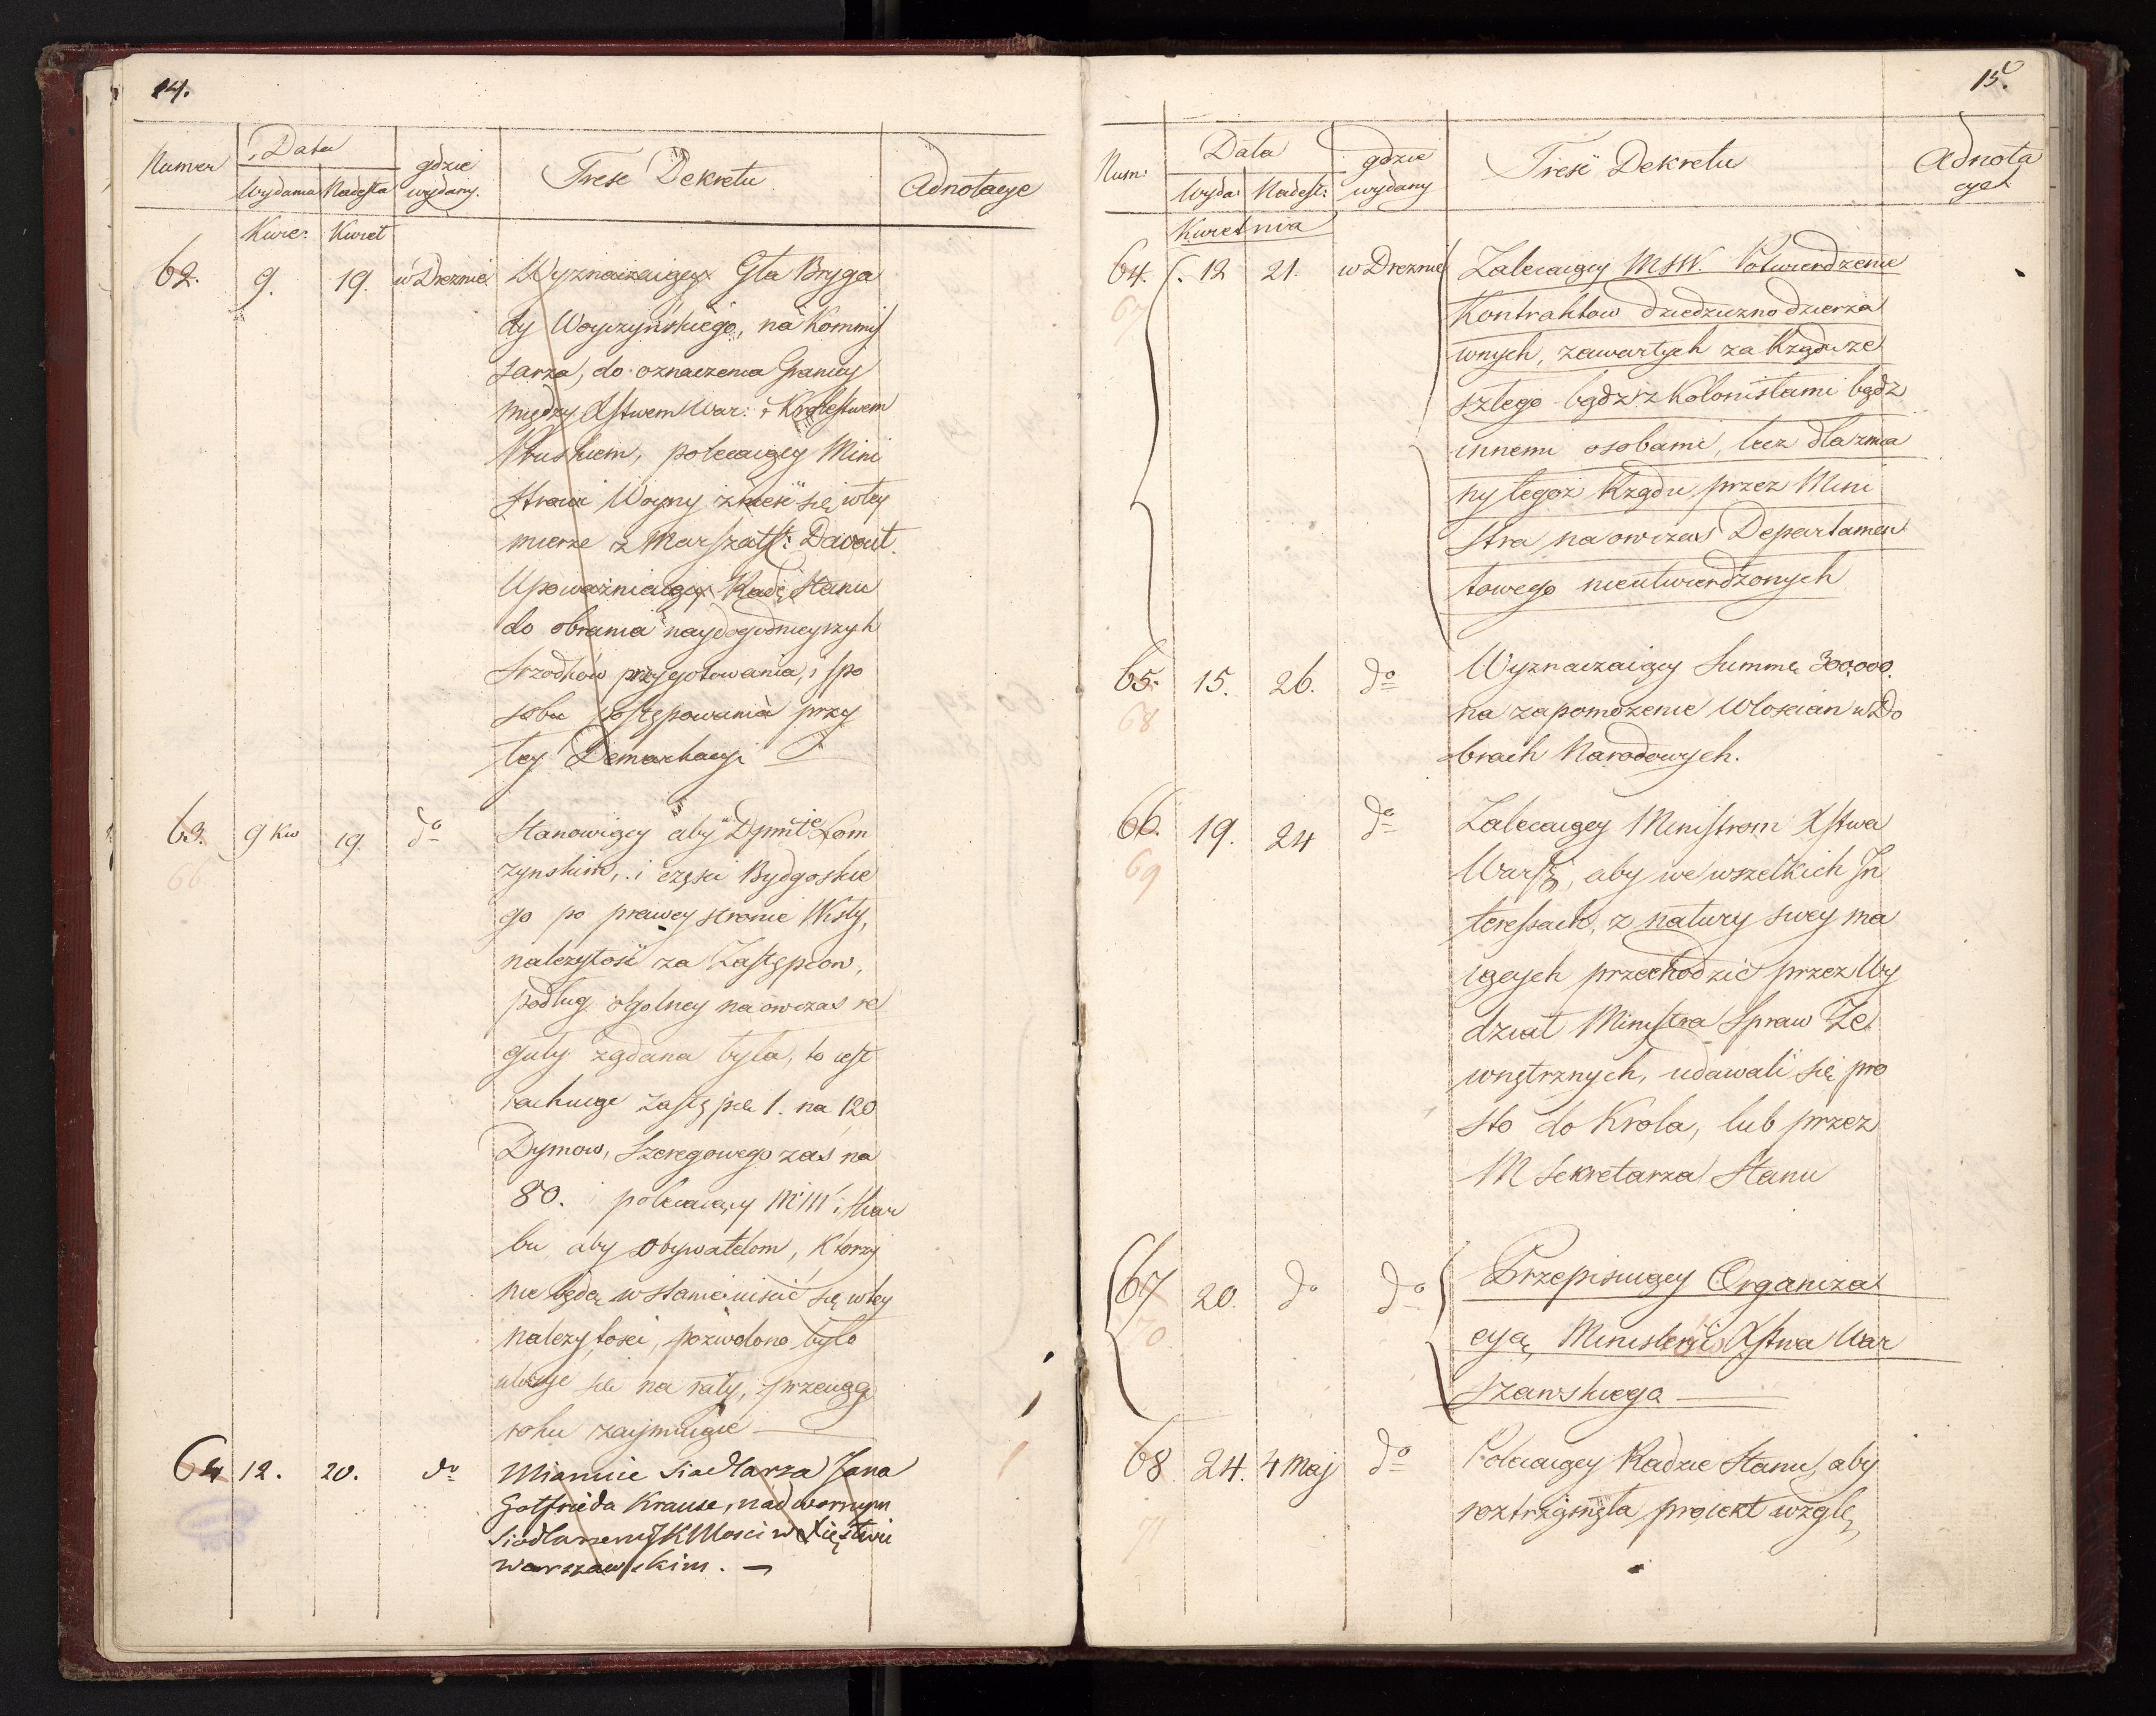 14.
Numer Data gdzie wydany. Tresć Dekretu Adnotacye
Wydania Nadesła
Kwie: Kwiet
62. 9. 19. w Dreznie Wyznaczaiący Gła Bryga
dy Woyczyńskiego, na Kommis
sarza, do oznaczenia Granicy
między Xstwem War: i Krolestwem
Pruskiem, polecaiący Mini
strowi Woyny znieść się w tey
mierze z Marszałk: Davout.
Upoważniaiący Radę Stanu
do obrania naydogodnieyszych
srzodków przygotowania, i spo
sobu postępowania przy
tey Demarkacyi
63. 9 Kw 19. do Stanowiący aby w Dpmcie Łom
66
zynskim, i części Bydgoskie
go po prawey stronie Wisły,
należytość za Zastępcow,
podług ogolney naowczas re
guły żądana była, to iest
rachuiąc Zastępcę 1. na 120
Dymow, Szeregowego zaś na
80. polecaiący Min: Skar
bu aby obywatelom, ktorzy
nie będą w stanie uiścić się w tey
należytości, pozwolono było
uiścić się na raty, przeciąg
roku zaymuiące
64 12. 20. do Mianuie Siodlarza Jana
Gotfrieda Krause, nadwornym
Siodlarzem JKMosci w Xięstwie
Warszawskim. —
15.
Num: Data gdzie wydany Tresć Dekretu Adnota
cyel
Wyda: Nadesł:
Kwietnia
64. 12 21. w Dreznie Zalecaiący MSW. Potwierdzenie
67
Kontraktow dziedziczno dzierza
wnych, zawartych za Rządu ze
szłego bądź z Kolonistami bądź
innemi osobami, lecz dla zmia
ny tegoż Rządu przez Mini
stra naowczas Departamen
towego nieutwierdzonych
65. 15. 26. do Wyznaczaiący Summę 300,000.
68
na zapomożenie Włoscian w Do
brach Narodowych.
66. 19. 24 do Zalecaiący Ministrom Xstwa
69
Warsz, aby we wszelkich In
teressach, z natury swey ma
iących przechodzić przez Wy
dział Ministra Spraw Ze
wnętrznych, udawali się pro
sto do Krola, lub przez
M Sekretarza Stanu
67 20. do do Przepisuiący Organiza
70
cyą Ministeriów Xstwa War
szawskiego
68 24. 4 Maj do Polecaiący Radzie Stanu, aby
71
roztrząsnęła proiekt wzglę